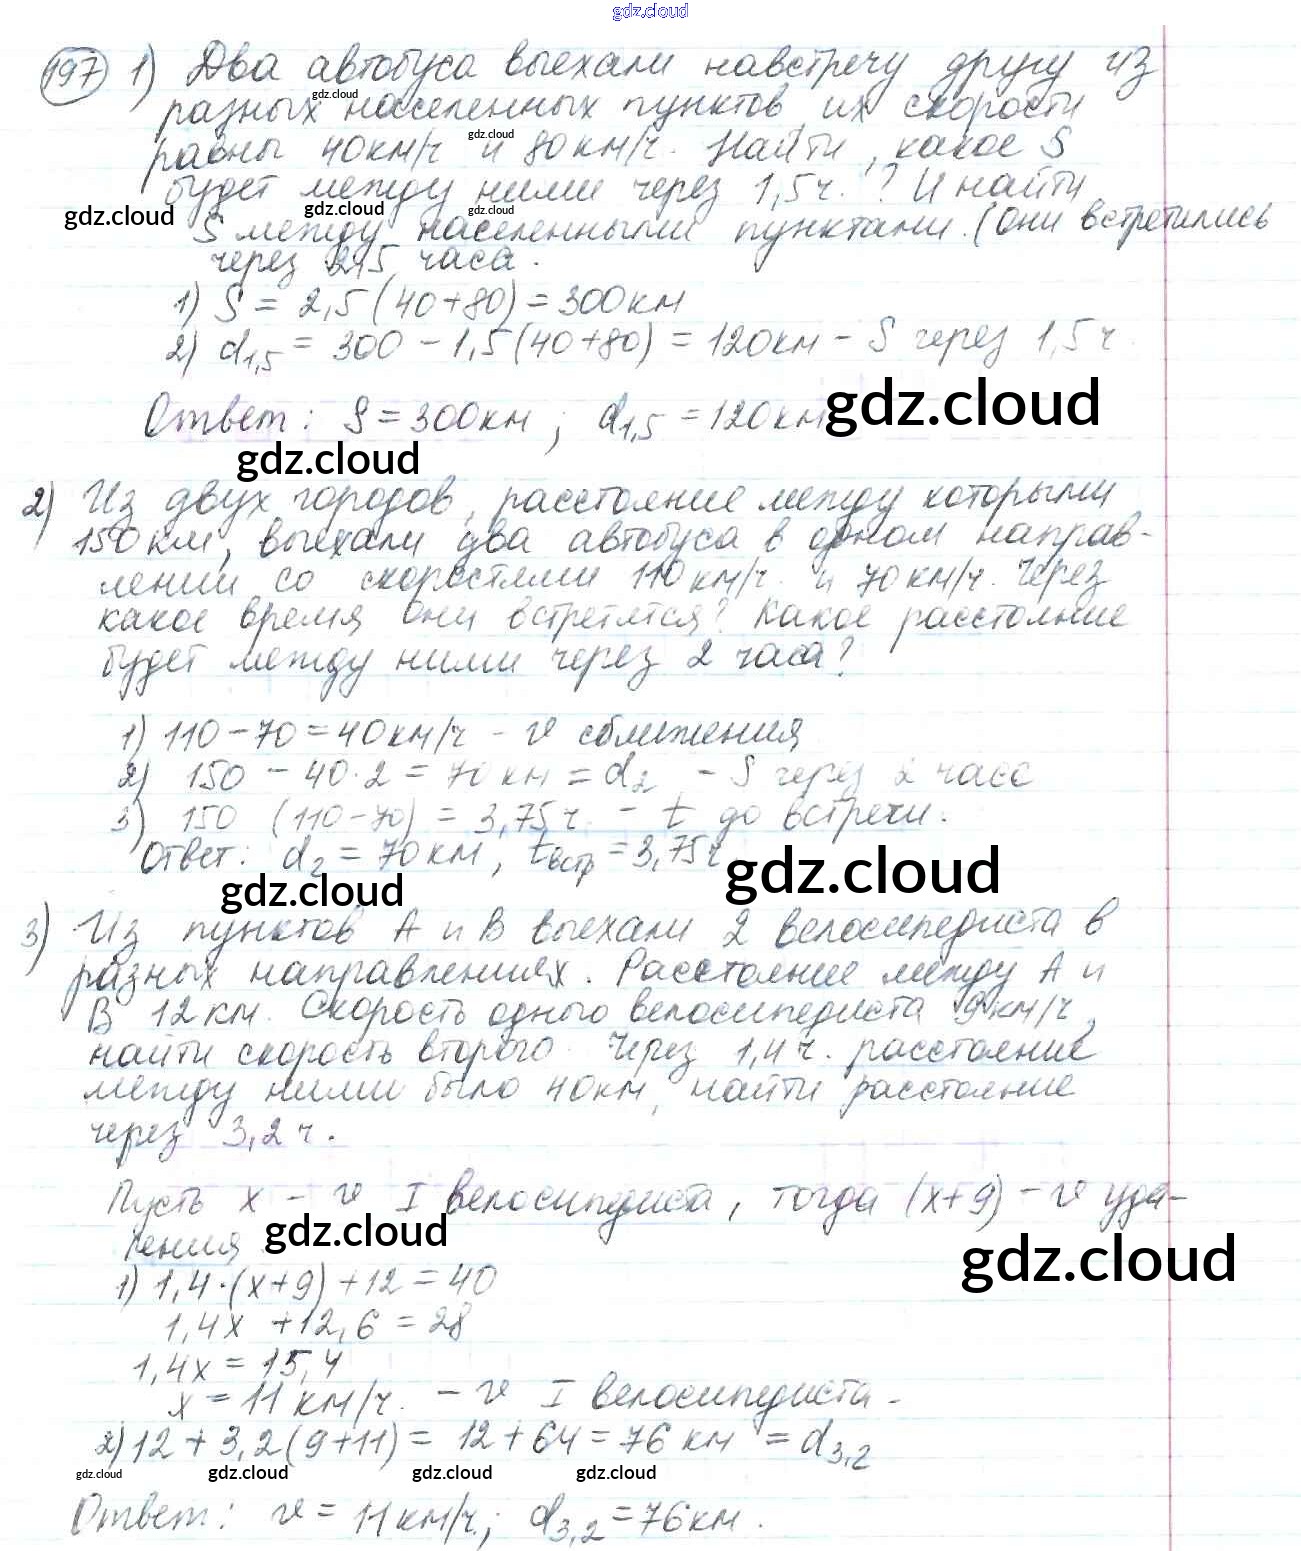 gdz.cloud
197 1) Два автобуса выехали навстречу другу из
gdz.cloud
разных населенных пунктов, их скорости
gdz.cloud
равны 40 км/ч и 80 км/ч. Найти, какое S
будет между ними через 1,5 ч.? И найти
gdz.cloud gdz.cloud gdz.cloud
S между населенными пунктами. (Они встретились
через 2,5 часа.
1) S = 2,5 (40+80) = 300 км
2) d1,5 = 300 - 1,5 (40+80) = 120 км - S через 1,5 ч.
Ответ: S = 300 км ; d1,5 = 120 км
gdz.cloud
gdz.cloud
2) Из двух городов, расстояние между которыми
150 км, выехали два автобуса в одном направ-
лении со скоростями 110 км/ч. и 70 км/ч. Через
какое время они встретятся? Какое расстояние
будет между ними через 2 часа?
1) 110 - 70 = 40 км/ч - v сближения
2) 150 - 40·2 = 70 км = d2 - S через 2 часс
3) 150 (110-70) = 3,75 ч. - t до встречи.
Ответ: d2 = 70 км, tвстр = 3,75 ч.
gdz.cloud gdz.cloud
3) Из пунктов А и В выехали 2 велосипедиста в
разных направлениях. Расстояние между А и
В 12 км. Скорость одного велосипедиста 9 км/ч,
найти скорость второго. Через 1,4 ч. расстояние
между ними было 40 км, найти расстояние
через 3,2 ч.
Пусть x - v I велосипедиста, тогда (x+9) - v уда-
ления
gdz.cloud gdz.cloud
1) 1,4·(x+9) + 12 = 40
1,4x + 12,6 = 28
1,4x = 15,4
x = 11 км/ч. - v I велосипедиста.
2) 12 + 3,2 (9+11) = 12 + 64 = 76 км = d3,2
gdz.cloud gdz.cloud gdz.cloud gdz.cloud
Ответ: v = 11 км/ч; d3,2 = 76 км.